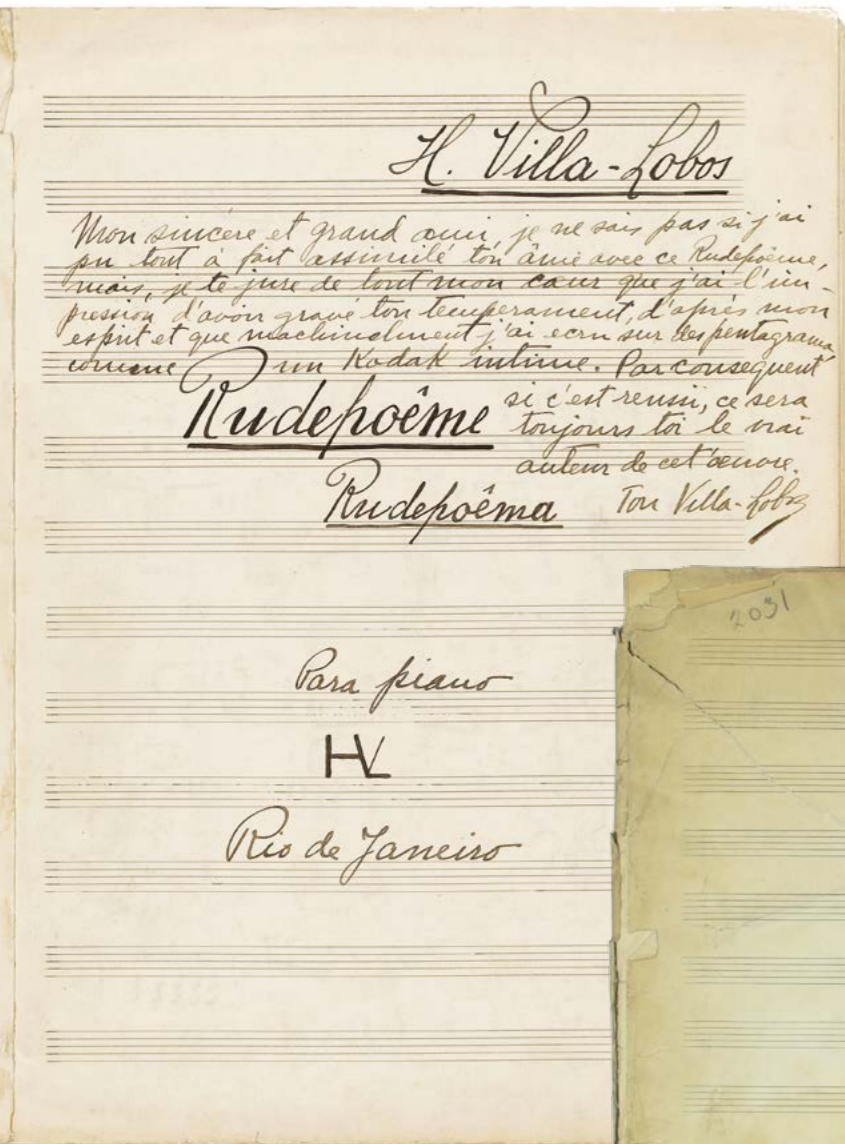 H. Villa-Lobos
Mon sincère et grand ami, je ne sais pas si j'ai
pu tout à fait assimilé ton âme avec ce Rudepoême,
mais, je te jure de tout mon cœur que j'ai l'im-
pression d'avoir gravé ton temperament, d'après mon
esprit et que machinalment j'ai ecru sur des pentagrama,
comme un Kodak intime. Par consequent
si c'est reussi, ce sera
toujours toi le vrai
auteur de cet œuvre.
Ton Villa-Lobos
Rudepoême
Rudepoêma
2031
Para piano
HVL
Rio de Janeiro